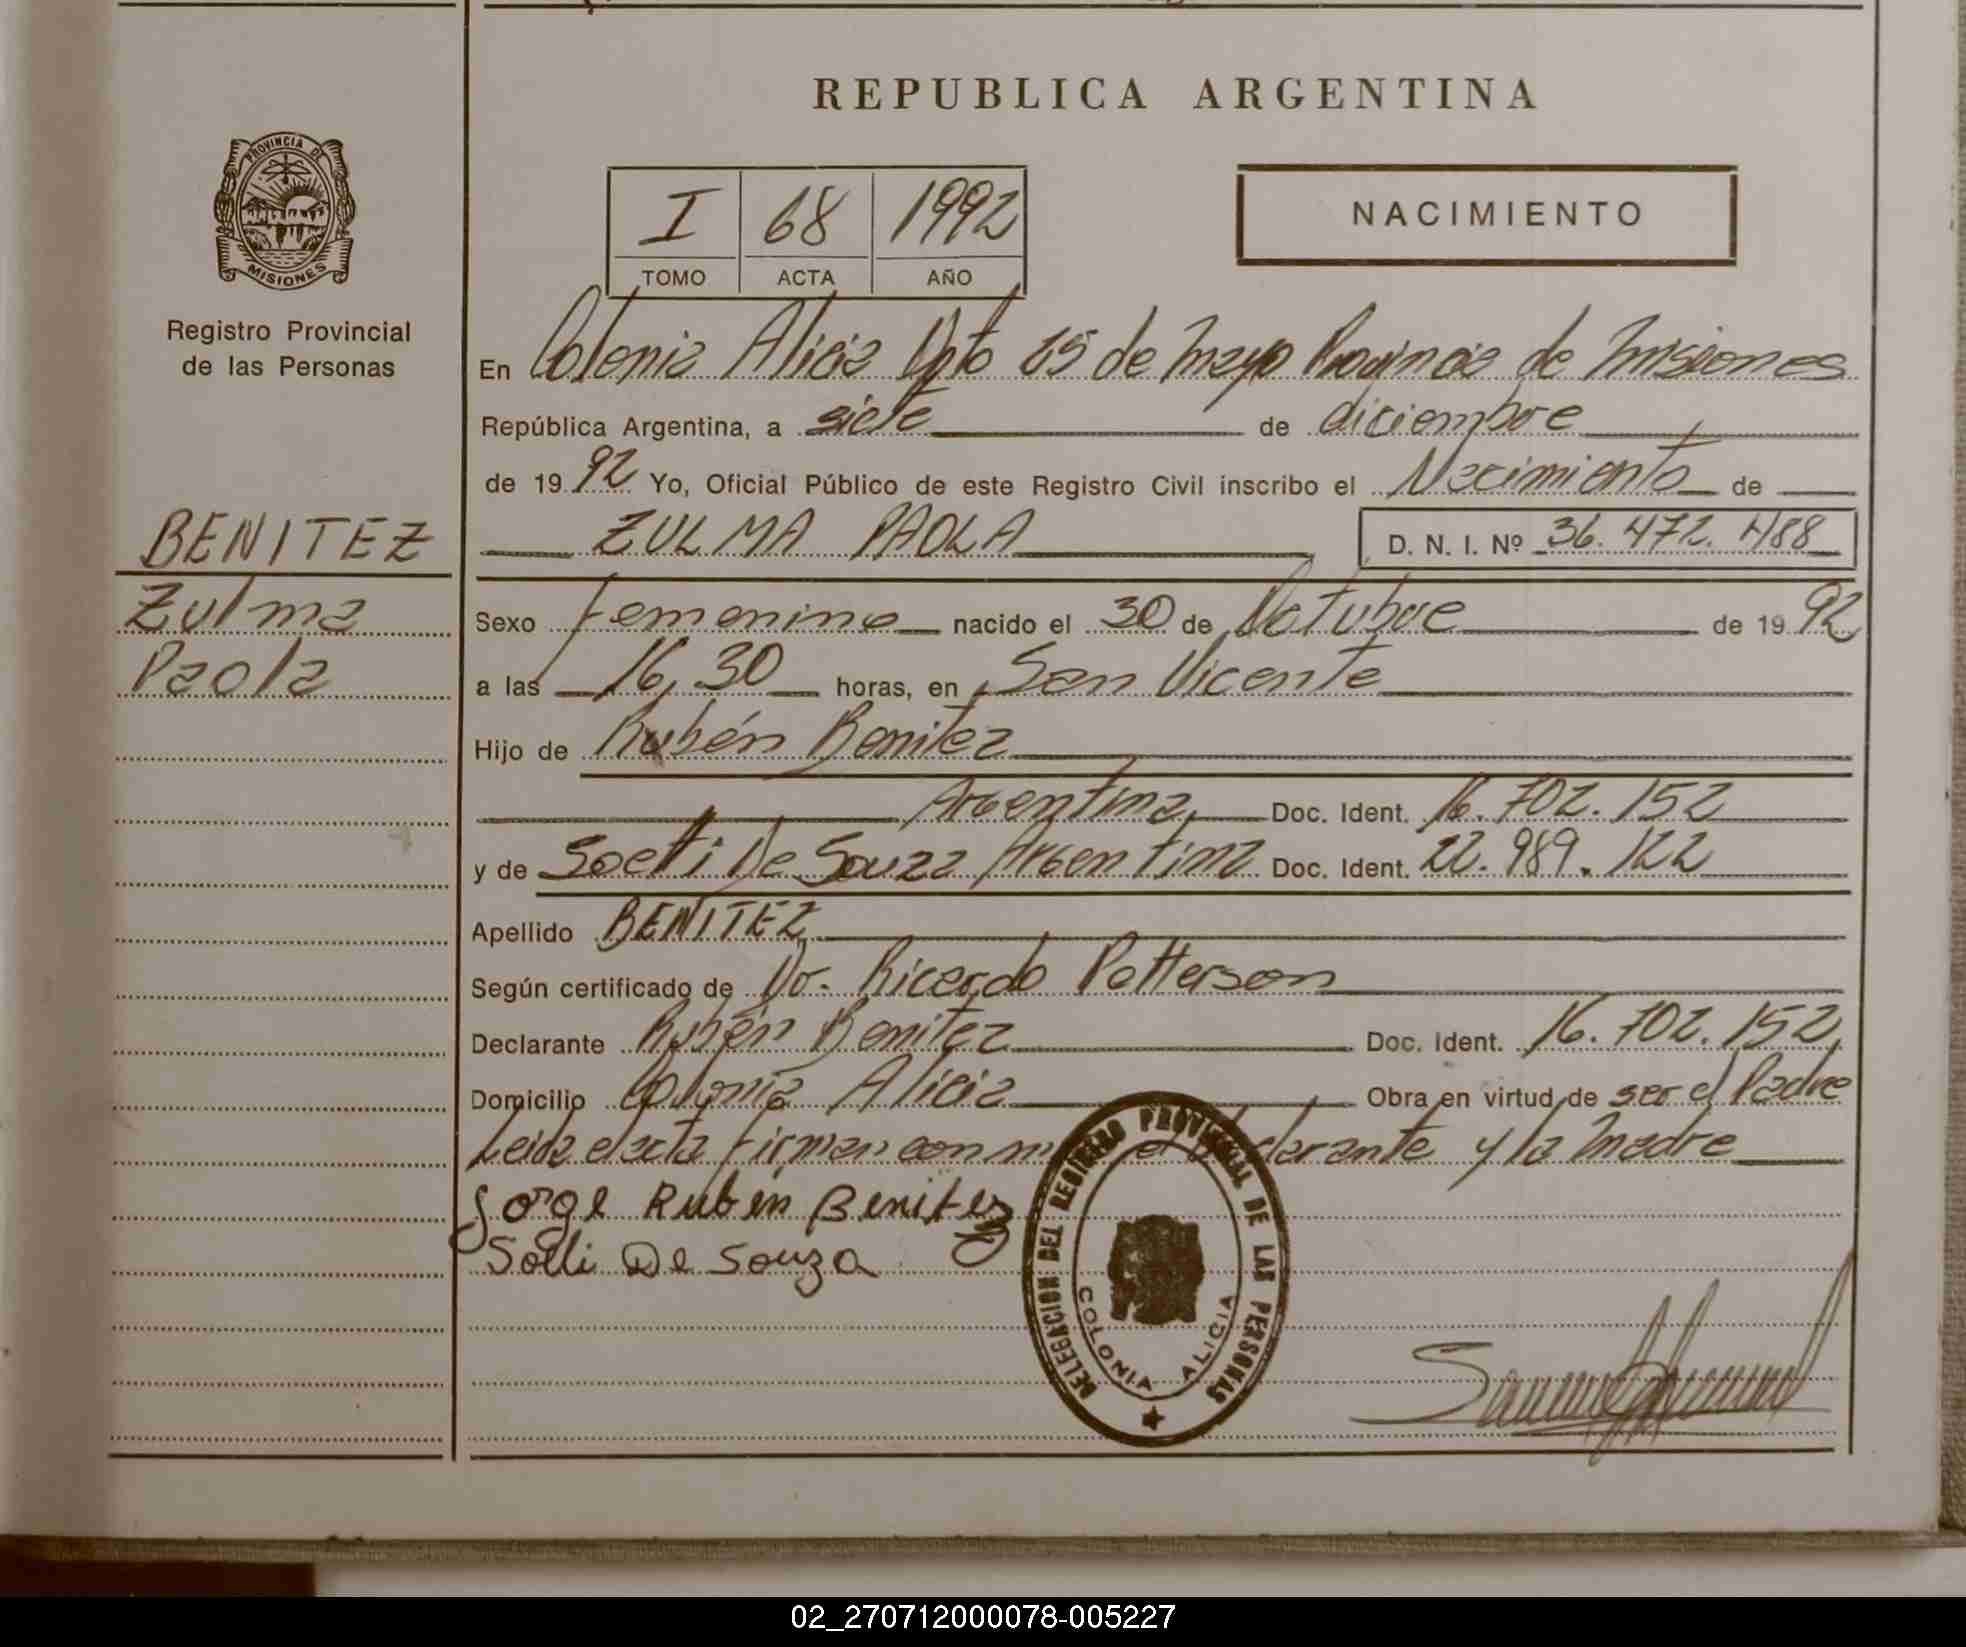 REPUBLICA ARGENTINA
PROVINCIA DE
MISIONES
Registro Provincial
de las Personas
I 68 1992
TOMO ACTA AÑO
NACIMIENTO
En Colonia Alicia Dpto 25 de Mayo Provincia de Misiones
República Argentina, a siete de diciembre
de 19 92 Yo, Oficial Público de este Registro Civil inscribo el Nacimiento de
ZULMA PAOLA D. N. I. Nº 36.472.488
BENITEZ
Zulma
Paola
Sexo Femenino nacido el 30 de Octubre de 19 92
a las 16,30 horas, en San Vicente
Hijo de Rubén Benitez
Argentina Doc. Ident. 16.702.152
y de Soeli De Souza Argentina Doc. Ident. 22.989.122
Apellido BENITEZ
Según certificado de Dr. Ricardo Patterson
Declarante Rubén Benitez Doc. Ident. 16.702.152
Domicilio Colonia Alicia Obra en virtud de ser el Padre
Leida el acta firman con el declarante y la madre
Jorge Rubén Benitez
Solli De Souza
DELEGACION DEL REGISTRO PROVINCIAL DE LAS PERSONAS
COLONIA ALICIA
02_270712000078-005227